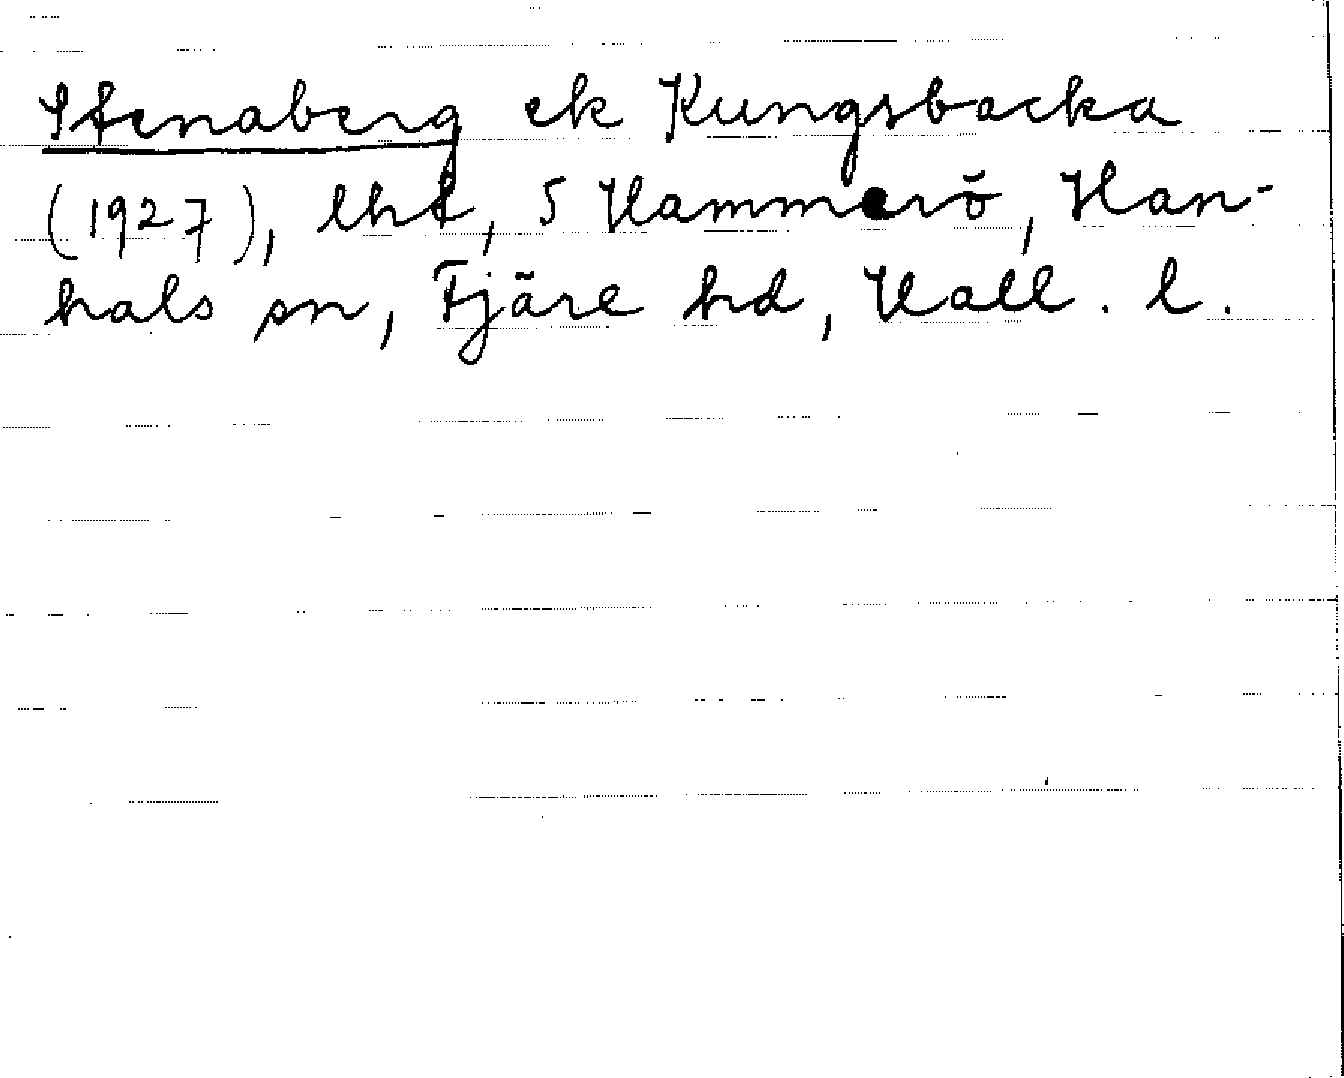 Stenaberg ek Kungsbacka
(1927), lht, 5 Hammerö, Han-
hals sn, Fjäre hd, Hall. l.